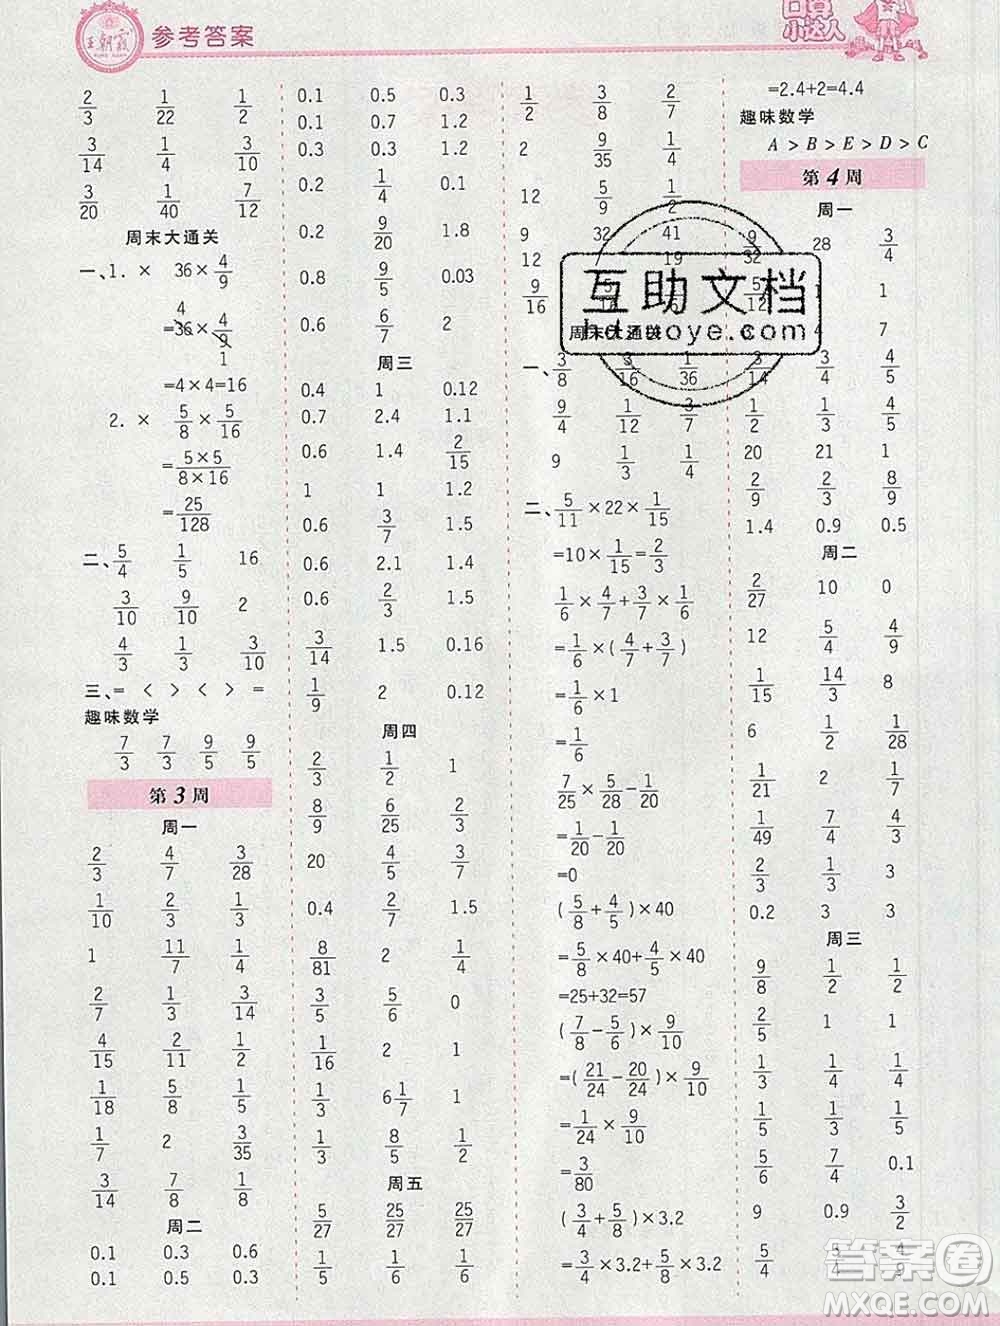 王朝霞
参考答案
口算
小达人
2/3 1/22 1/2
3/14 1/4 3/10
3/20 1/40 7/12
周末大通关
一、1. × 36×4/9
=36×4/9
4
1
=4×4=16
2. × 5/8×5/16
=5×5/8×16
=25/128
二、5/4 1/5 16
3/10 9/10 2
4/3 1/3 3/10
三、= < > < > =
趣味数学
7/3 7/3 9/5 9/5
第3周
周一
2/3 4/7 3/28
1/10 2/3 2/3
1 11/7 1/9
2/7 1/3 3/14
4/15 2/11 1/2
1/18 5/8 1/5
1/7 2 3/35
3/14 7/8 1/8
周二
0.1 0.3 0.6
0.1 0.5 0.3
0.1 0.5 0.3
0.1 0.7 1.2
0.3 0.3 1.2
0.2 1/4 0.1
0.2 9/20 1.8
0.8 9/5 0.03
0.6 6/7 2
周三
0.4 1 0.12
0.7 2.4 1.1
0.6 1.4 2/15
1 1 1.2
0.6 3/7 1.5
0.6 2.1 1.2
0.6 2/3 1.5
3/14 1.5 0.16
1/9 2 0.12
周四
2/3 1/2 1
8/9 6/25 4/9
20 4/5 3/7
0.4 2/7 1.5
8/81 2 1/4
3/5 5/6 0
1/16 2 1
1/3 6 1/7 1
1/3 8/5 1/6
周五
5/27 25/27 25/27
1/5 1/5 1/5
1/2 3/8 2/7
2 9/35 1/4
12 5/9 1/2
9 32 41
9/16 5/16 19
周末大通关
一、3/8 3/16 1/36
9/4 1/12 3/7
9 1/3 1/4
二、5/11×22×1/15
=10×1/15=2/3
1/6×4/7+3/7×1/6
=1/6×(4/7+3/7)
=1/6×1
=1/6
7/25×5/28-1/20
=1/20-1/20
=0
(5/8+4/5)×40
=5/8×40+4/5×40
=25+32=57
(7/8-5/6)×9/10
=(21/24-20/24)×9/10
=1/24×9/10
=3/80
(3/4+5/8)×3.2
=3/4×3.2+5/8×3.2
=2.4+2=4.4
趣味数学
A>B>E>D>C
第4周
周一
9/32 28 3/4
5/12 1 1
3 4 7
3/14 3/4 4/5
1/2 3/4 4/5
20 21 1
2/9 2/3 8/9
1.4 0.9 0.5
周二
2/27 10 0
12 5/4 4/9
1/15 14/3 8
6 1/2 1/28
1/21 2 1/7
1/49 7/4 4/3
2/3 1/3 3
0.2 3 3
周三
9/8 1/2 1/2
2/5 1 1
1/3 1/4 1/4
1/5 1/3 1/5
5/6 7/9 0.1
9 0.9 3/2
5/4 3/4 4/9
互助文档
答案圈
MXQE.COM